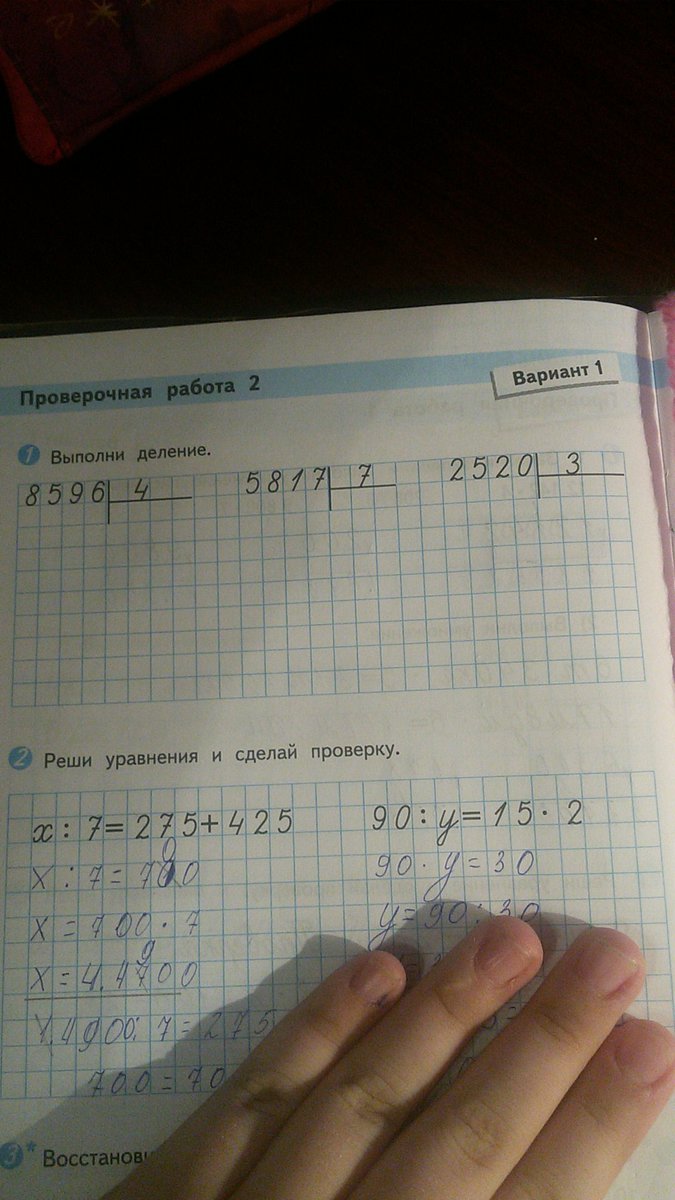 Проверочная работа 2
Вариант 1
1 Выполни деление.
8596 4 5817 7 2520 3
2 Реши уравнения и сделай проверку.
x : 7 = 275 + 425
90 : y = 15 · 2
X : 7 = 700
90 · y = 30
X = 700 · 7
y = 90 : 30
X = 4900
4900 : 7 = 275
700 = 70
3* Восстанови